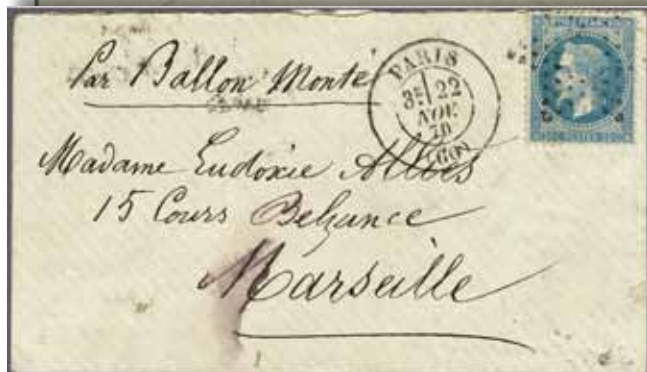 Par Ballon Monté
PARIS
3E 22
NOV
70
(60)
Madame Eudoxie Allies
15 Cours Belzunce
Marseille